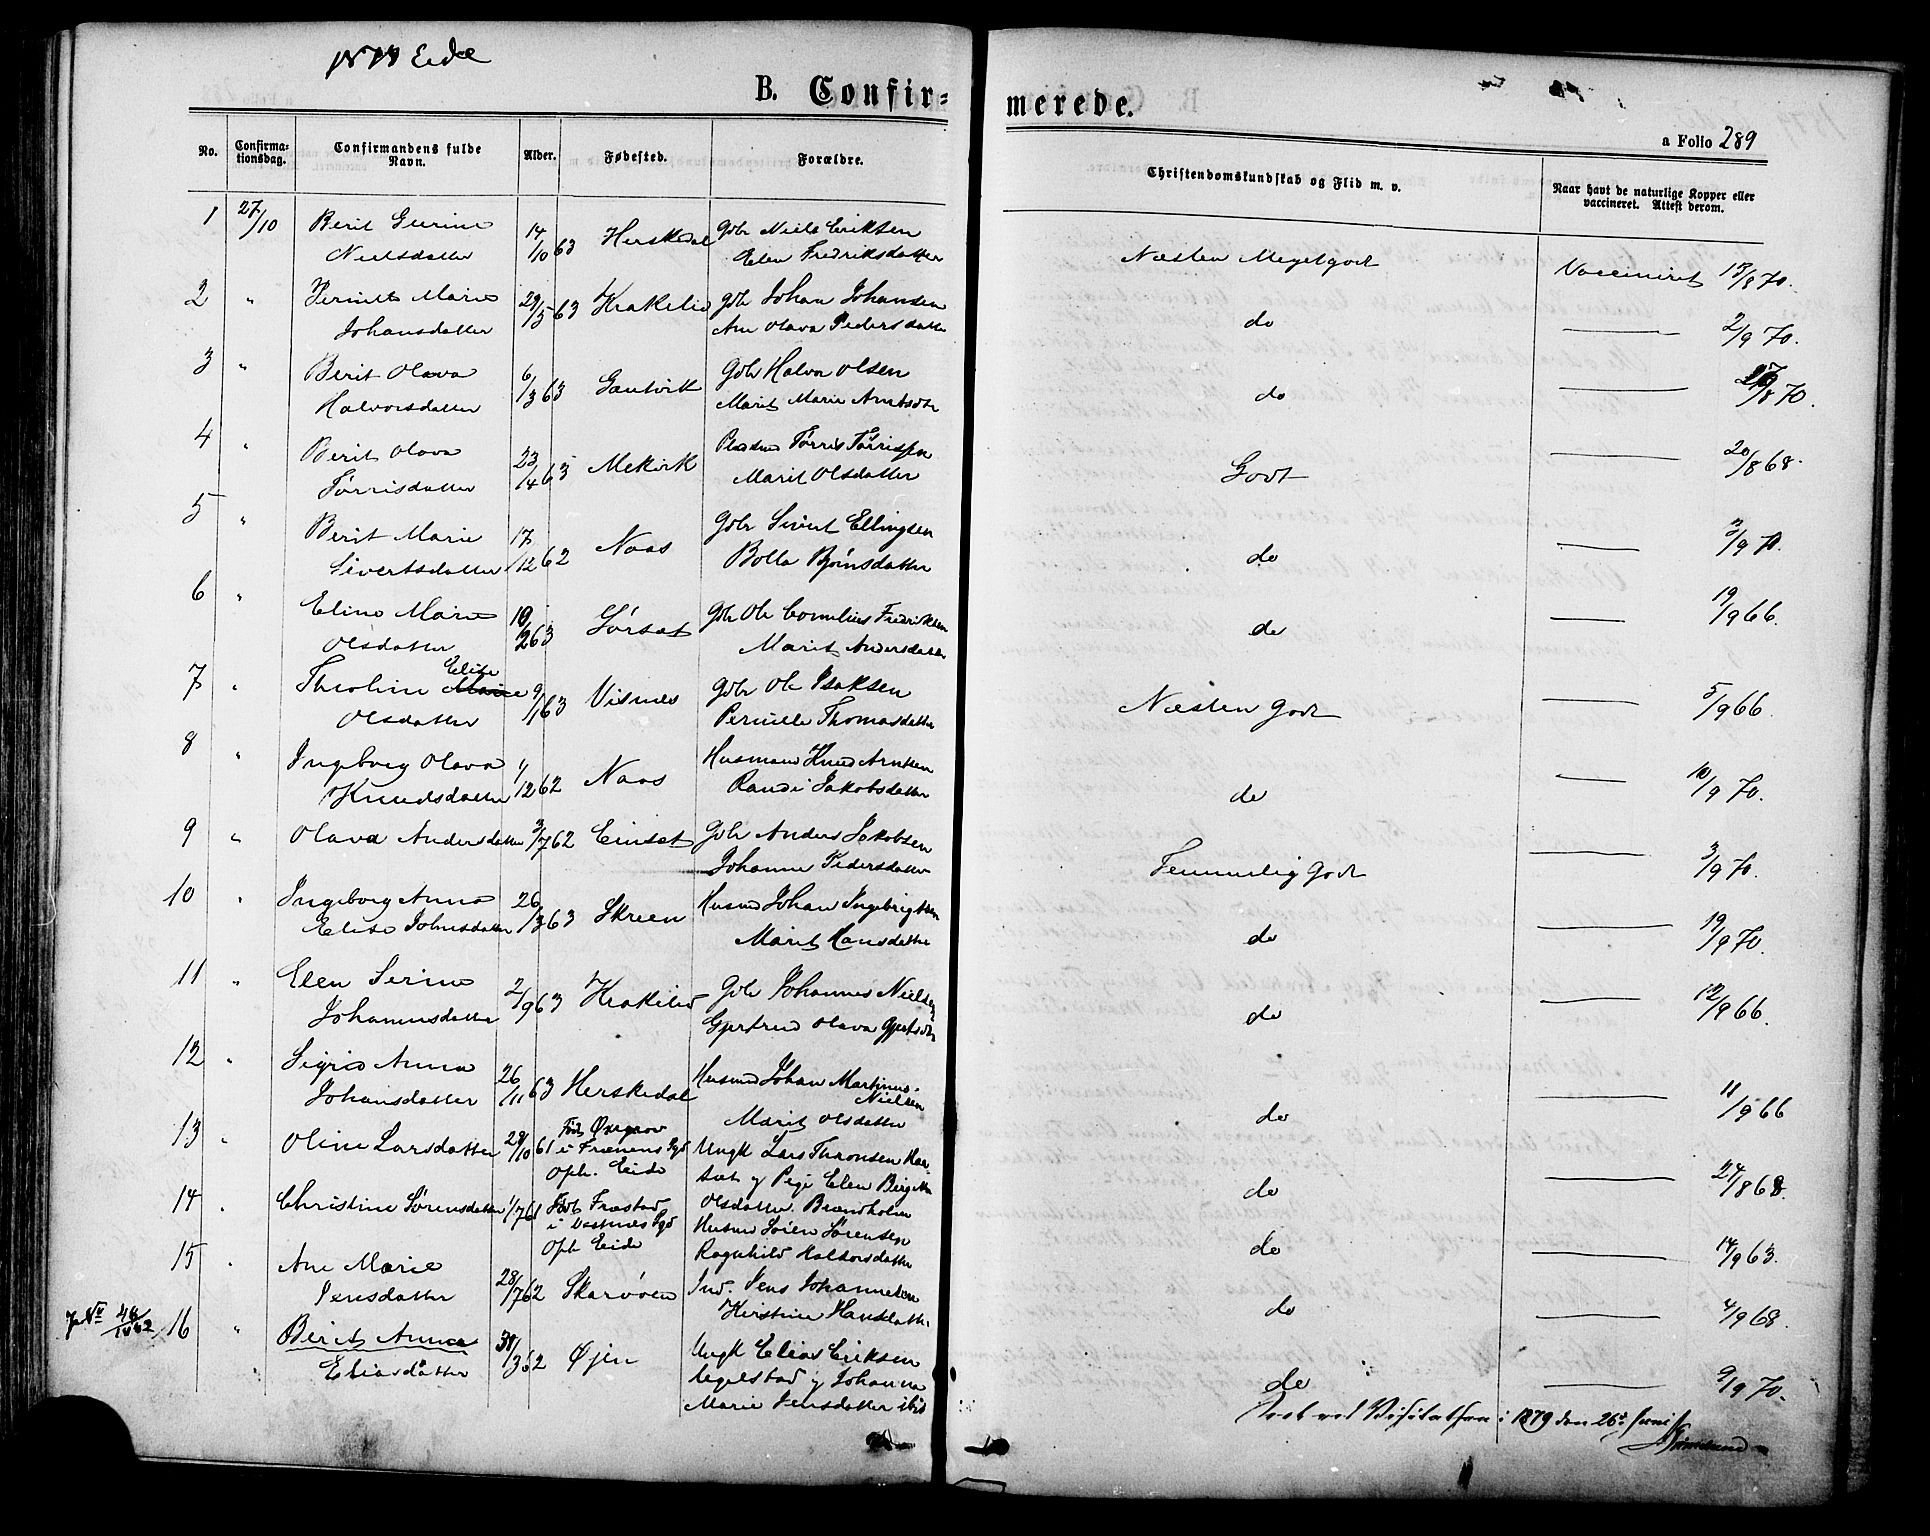 Eide
B. Confir-
merede.
a Folio 289
No.
Confirma-
tionsdag.
Confirmandens fulde
Navn.
Alder.
Fødested.
Forældre.
Christendomskundskab og Flid m. v.
Naar havt de naturlige Kopper eller
vaccineret. Attest derom.
1 27/10 Berit Gurine
Nielsdatter
14/10 63 Herskedal
Gbr Niels Eriksen
Elen Fredriksdatter
Næsten Meget godt
Vaccineret 13/8 70.
2 " Pernille Marie
Johansdatter
29/5 63 Krakelid
Gbr Johan Johansen
Ane Olava Pedersdatter
do
2/9 70.
3 " Berit Olava
Halvorsdatter
6/3 63 Gautvik
Gbr Halvor Olsen
Marit Marie Arntsdtr
do
/8 70.
4 " Berit Olava
Tørrisdatter
23/4 63 Mekvik
Pladsmd Tørris Tørrissen
Marit Olsdatter
Godt
20/8 68.
5 " Berit Marie
Sivertsdatter
17/12 62 Naas
Gbr Sivert Ellingsen
Bolla Bjørnsdatter
do
3/9 70.
6 " Eline Marie
Olsdatter
19/2 63 Sørsæt
Gbr Ole Cornelius Fredriksen
Marit Andersdatter
do
19/9 66.
7 " Theoline Marie Elise
Olsdatter
9/1 63 Visnes
Gbr Ole Isaksen
Pernille Thomasdatter
Næsten godt
5/9 66.
8 " Ingeborg Olava
Knudsdatter
1/12 62 Naas
Husmand Knud Arntsen
Randi Jakobsdatter
do
10/9 70.
9 " Olava Andersdatter
3/7 62 Einset
Gbr Anders Jakobsen
Johanne Pedersdatter
Temmelig godt
3/9 70.
10 " Ingeborg Anna
Elise Johnsdatter
26/3 63 Skreen
Husmd Johan Ingebrigtsen
Marit Hansdatter
do
19/9 70.
11 " Elen Serine
Johannesdatter
2/9 63 Krakelid
Gbr Johannes Nielsen
Gjertrud Olava Gjertsdtr
do
12/9 66.
12 " Sigrid Anna
Johansdatter
26/11 63 Herskedal
Husmd Johan Martinus
Nielsen
Marit Olsdatter
do
11/9 66
13 " Oline Larsdatter
29/10 61 Født
i Frænens Pgd
Oph. Eide
Ungk Lars Thronsen
og Pige Elen Birgitte
Olsdatter.
do
24/8 68.
14 " Christine Sørensdatter
1/7 61 Født Frostad
i Pgd
Oph Eide
Husmd Søren Sørensen
Ragnhild Halvorsdatter
do
14/9 63.
15 " Ane Marie
Jensdatter
28/7 62 Skarøven
Ind. Jens Johannesen
Kirstine Hansdatter
do
4/9 68.
16 " Berit Anna
Eliasdatter
30/3 62 Øjen
Ungk Elias Eriksen
og Johanna
Marie Jensdatter ibid
do
9/9 70.
Seet ved Visitatsen i 1879 den 26de Juni